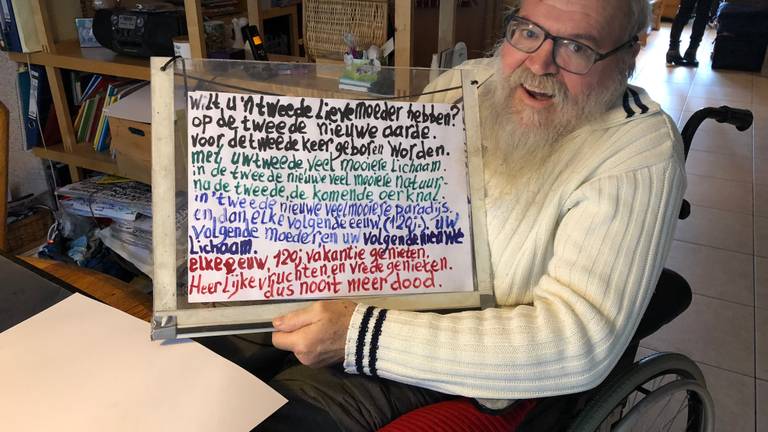 Wilt u 'n tweede Lieve moeder hebben?
op de tweede nieuwe aarde.
voor de tweede keer geboren worden.
met uw tweede veel mooiere Lichaam.
in de tweede nieuwe veel mooiere natuur
na de tweede, de komende oerknal.
in 't tweede nieuwe veel mooiere paradijs.
en dan elke volgende eeuw, (120j.). uw
volgende moeder, en uw volgende nieuwe
Lichaam.
elke eeuw, 120j vakantie genieten.
Heerlijke vruchten, en vrede genieten.
dus nooit meer dood.